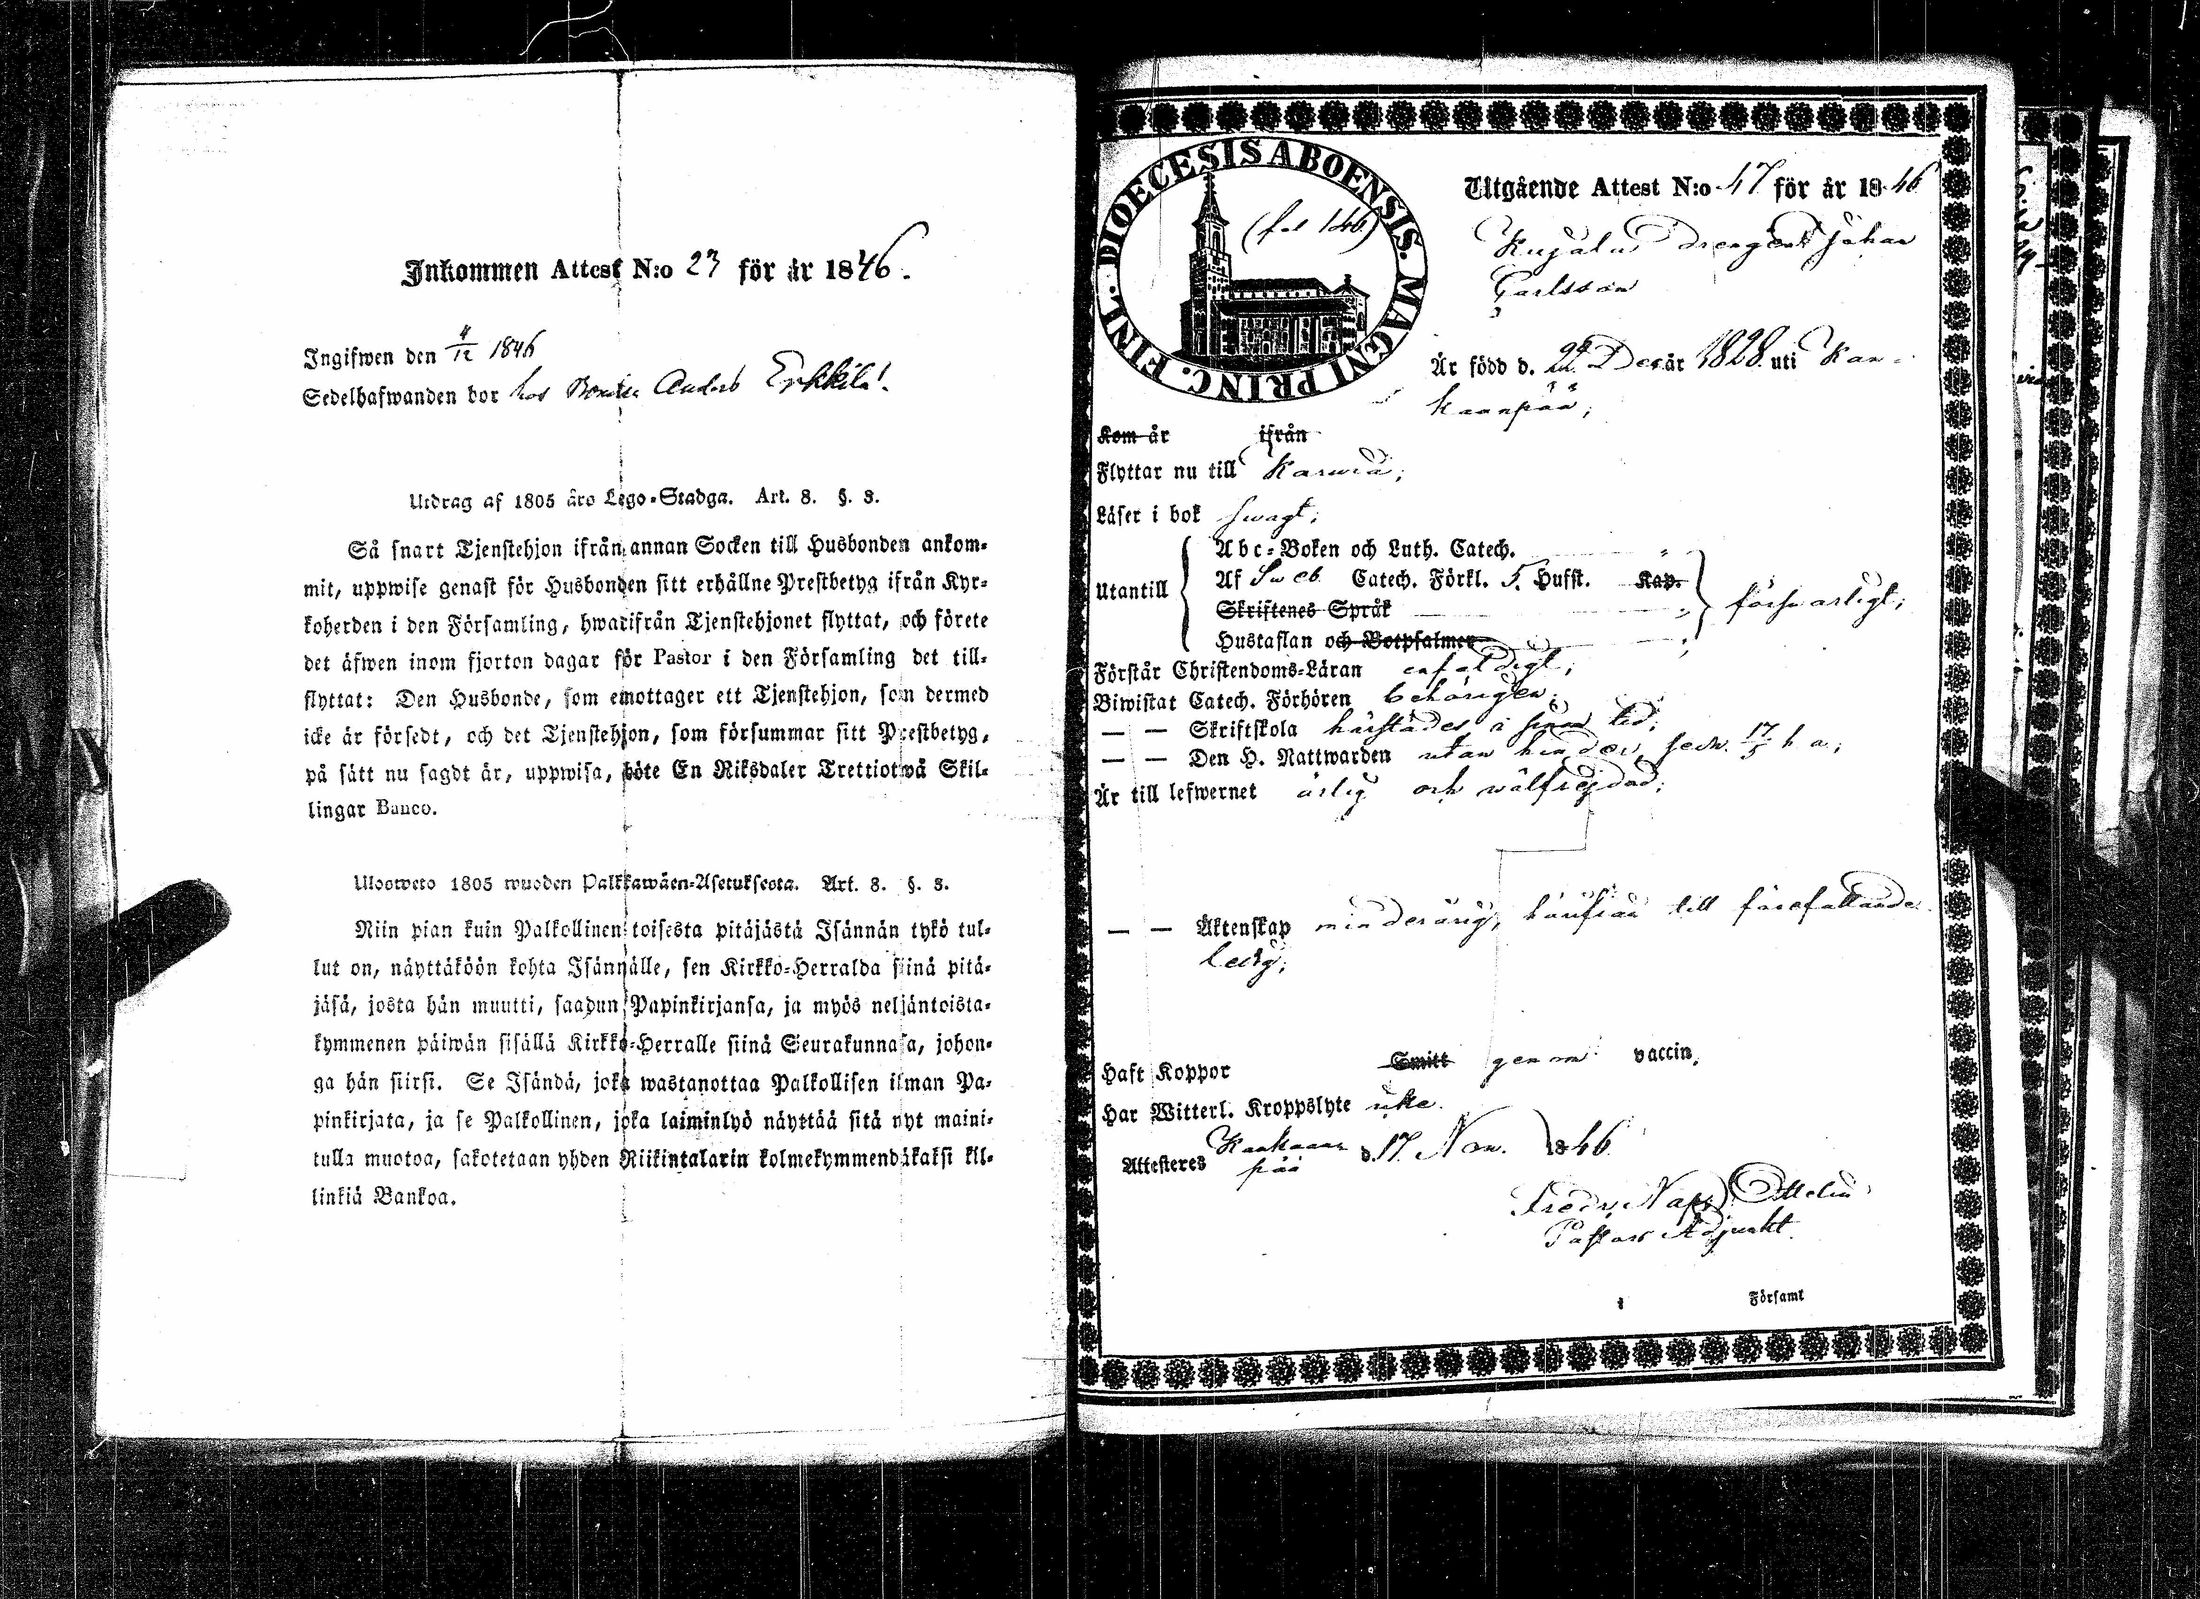 Inkommen Attest N:o 23 för år 1846.
Ingifwen den 4/12 1846
Sedelhafwanden bor hos Bonden Anders Erkkilä.
Utdrag af 1805 års Lego-Stadga. Art. 8. §. 3.
Så snart Tjenstehjon ifrån annan Socken till Husbonden ankom-
mit, uppwise genast för Husbonden sitt erhållne Prestbetyg ifrån Kyr-
koherden i den Församling, hwarifrån Tjenstehjonet flyttat, och förete
det äfwen inom fjorton dagar för Pastor i den Församling det till-
flyttat: Den Husbonde, som emottager ett Tjenstehjon, som dermed
icke är försedt, och det Tjenstehjon, som försummar sitt Prestbetyg,
på sätt nu sagdt är, uppwisa, böte En Riksdaler Trettiotwå Skil-
lingar Banco.
Ulosweto 1805 wuoden Palkkawäen-Asetuksesta. Art. 8. §. 3.
Niin pian kuin Palkollinen toisesta pitäjästä Isännän tykö tul-
lut on, näyttäköön kohta Isännälle, sen Kirkko-Herralda siinä pitä-
jäsä, josta hän muutti, saadun Papinkirjansa, ja myös neljäntoista-
kymmenen päiwän sisällä Kirkko-Herralle siinä Seurakunnasa, johon-
ga hän siirsi. Se Isändä, joka wastanottaa Palkollisen ilman Pa-
pinkirjata, ja se Palkollinen, joka laiminlyö näyttää sitä nyt maini-
tulla muotoa, sakotetaan yhden Riikintalarin kolmekymmendäkaksi kil-
linkiä Bankoa.
DIOECESIS ABOENSIS. MAGNI PRINC. FINL.
(fol 146)
Utgående Attest N:o 47 för år 1846
drengen Johan
Carlsson
Är född d. 22 Dec. år 1828 uti Kan-
kaanpää;
Kom år ifrån
Flyttar nu till Karwia;
Läser i bok swagt;
Utantill
Abc-Boken och Luth. Catech.
Af Sweb. Catech. Förkl. 5. Hufst. Kap.
Skriftenes Språk
Hustaflan och Botpsalmer
försvarligt;
Förstår Christendoms-Läran enfaldigt;
Biwistat Catech. Förhören behörigen;
— — Skriftskola härstädes i sinom tid;
— — Den H. Nattwarden utan hinder, sedn. 17/5 h. a.;
Är till lefwernet ärlig och wälfrejdad;
— — Äktenskap minderårig, hänsian till förefallande
ledig;
Haft Koppor Smitt genom vaccin,
Har Witterl. Kroppslyte icke.
Attesteres Kankaan-
pää d. 17 Nov. 1846
Fredr. Nap. Ottelin
Pastors Adjunkt.
i Församl